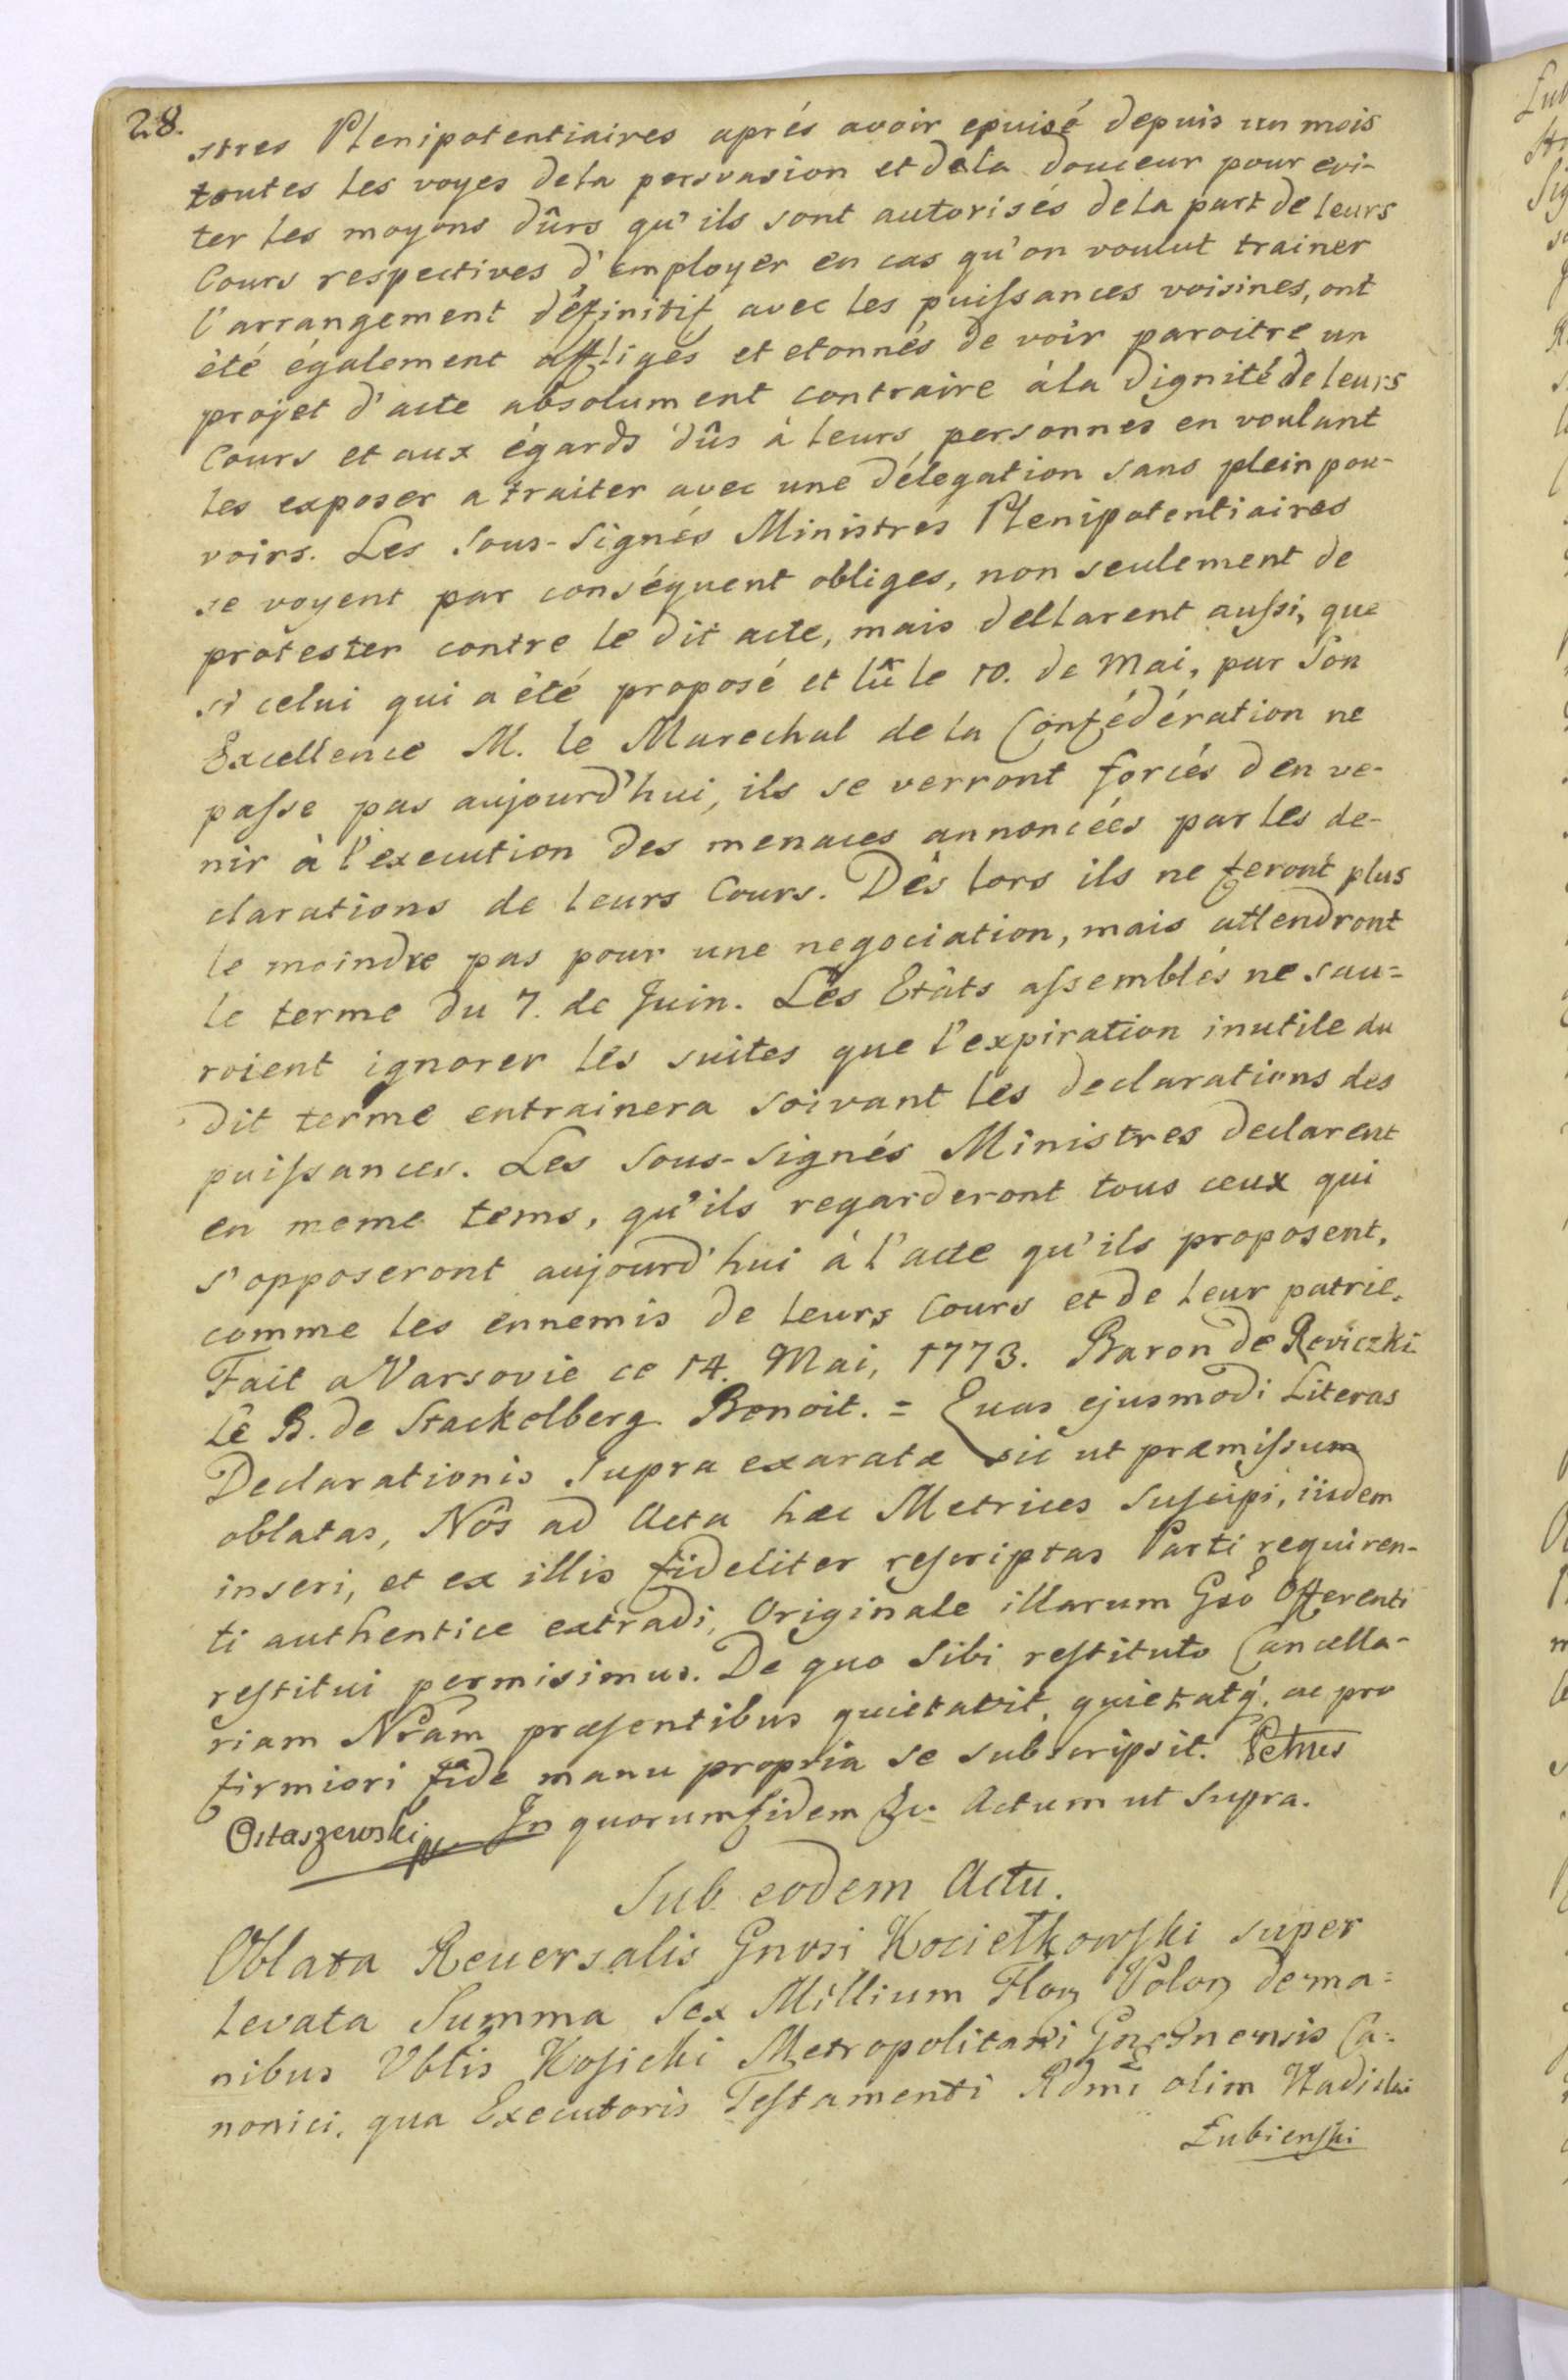 28.
stres Plenipotentiaires aprés avoir epuisé depuis un mois
toutes les voyes dela persvasion et dela douceur pour evi-
ter les moyens dûrs qu'ils sont autorisés dela part de leurs
Cours respectives d'employer en cas qu'on voulut trainer
l'arrangement definitif avec les puiſsances voisines, ont
été également affligés et etonnés de voir paroitre un
projet d'acte absolument contraire àla dignité de leurs
Cours et aux égards dûs à leurs personnes en voulant
les exposer a traiter avec une délegation sans plein pou-
voirs. Les Sous-Signés Ministres Plenipotentiaires
se voyent par conséquent obliges, non seulement de
protester contre le dit acte, mais dellarent auſsi, que
si celui qui a été proposé et lû le 10. de Mai, par Son
Excellence M. le Marechal de la Confédération ne
paſse pas aujourd'hui, ils se verront forcés d'en ve-
nir à l'execution des menaces annoncées par les de-
clarations de leurs Cours. Dès lors ils ne feront plus
le moindre pas pour une negociation, mais attendront
le terme du 7. de Juin. Les Etâts aſsemblés ne sau=
roient ignorer les suites que l'expiration inutile du
dit terme entrainera soivant les declarations des
puiſsances. Les Sous-signés Ministres declarent
en meme tems, qu'ils regarderont tous ceux qui
s'opposeront aujourd'hui à l'acte qu'ils proposent,
comme les ennemis de leurs Cours et de leur patrie.
Fait a Varsovie ce 14. Mai, 1773. Baron de Reviczki
Le B. de Stackelberg Benoit. = Quas ejusmodi Literas
Declarationis Supra exaratæ sic ut præmiſsum
oblatas, Nos ad Acta hæc Metrices Suſcipi, iisdem
inseri, et ex illis fideliter reſcriptas Parti requiren-
ti authentice extradi, Originale illarum Gsō Offerenti
reſtitui permisimus. De quo Sibi reſtituto Cancella-
riam Nrām præſentibus quietavit, quietatq́, ac pro
firmiori fide manu propria se subscripsit. Petrus
Ostaszewski In quorum fidem &c. Actum ut Supra.
Sub eodem Actu.
Oblata Reuersalis Gnosi Kociełkowſki super
levata Summa Sex Millium Flor Polor de ma=
nibus Vblis Koſicki Metropolitani Gneſnensis Ca=
nonici, qua Executoris Teſtamenti Rdmi olim Vladislai
Łubienſki